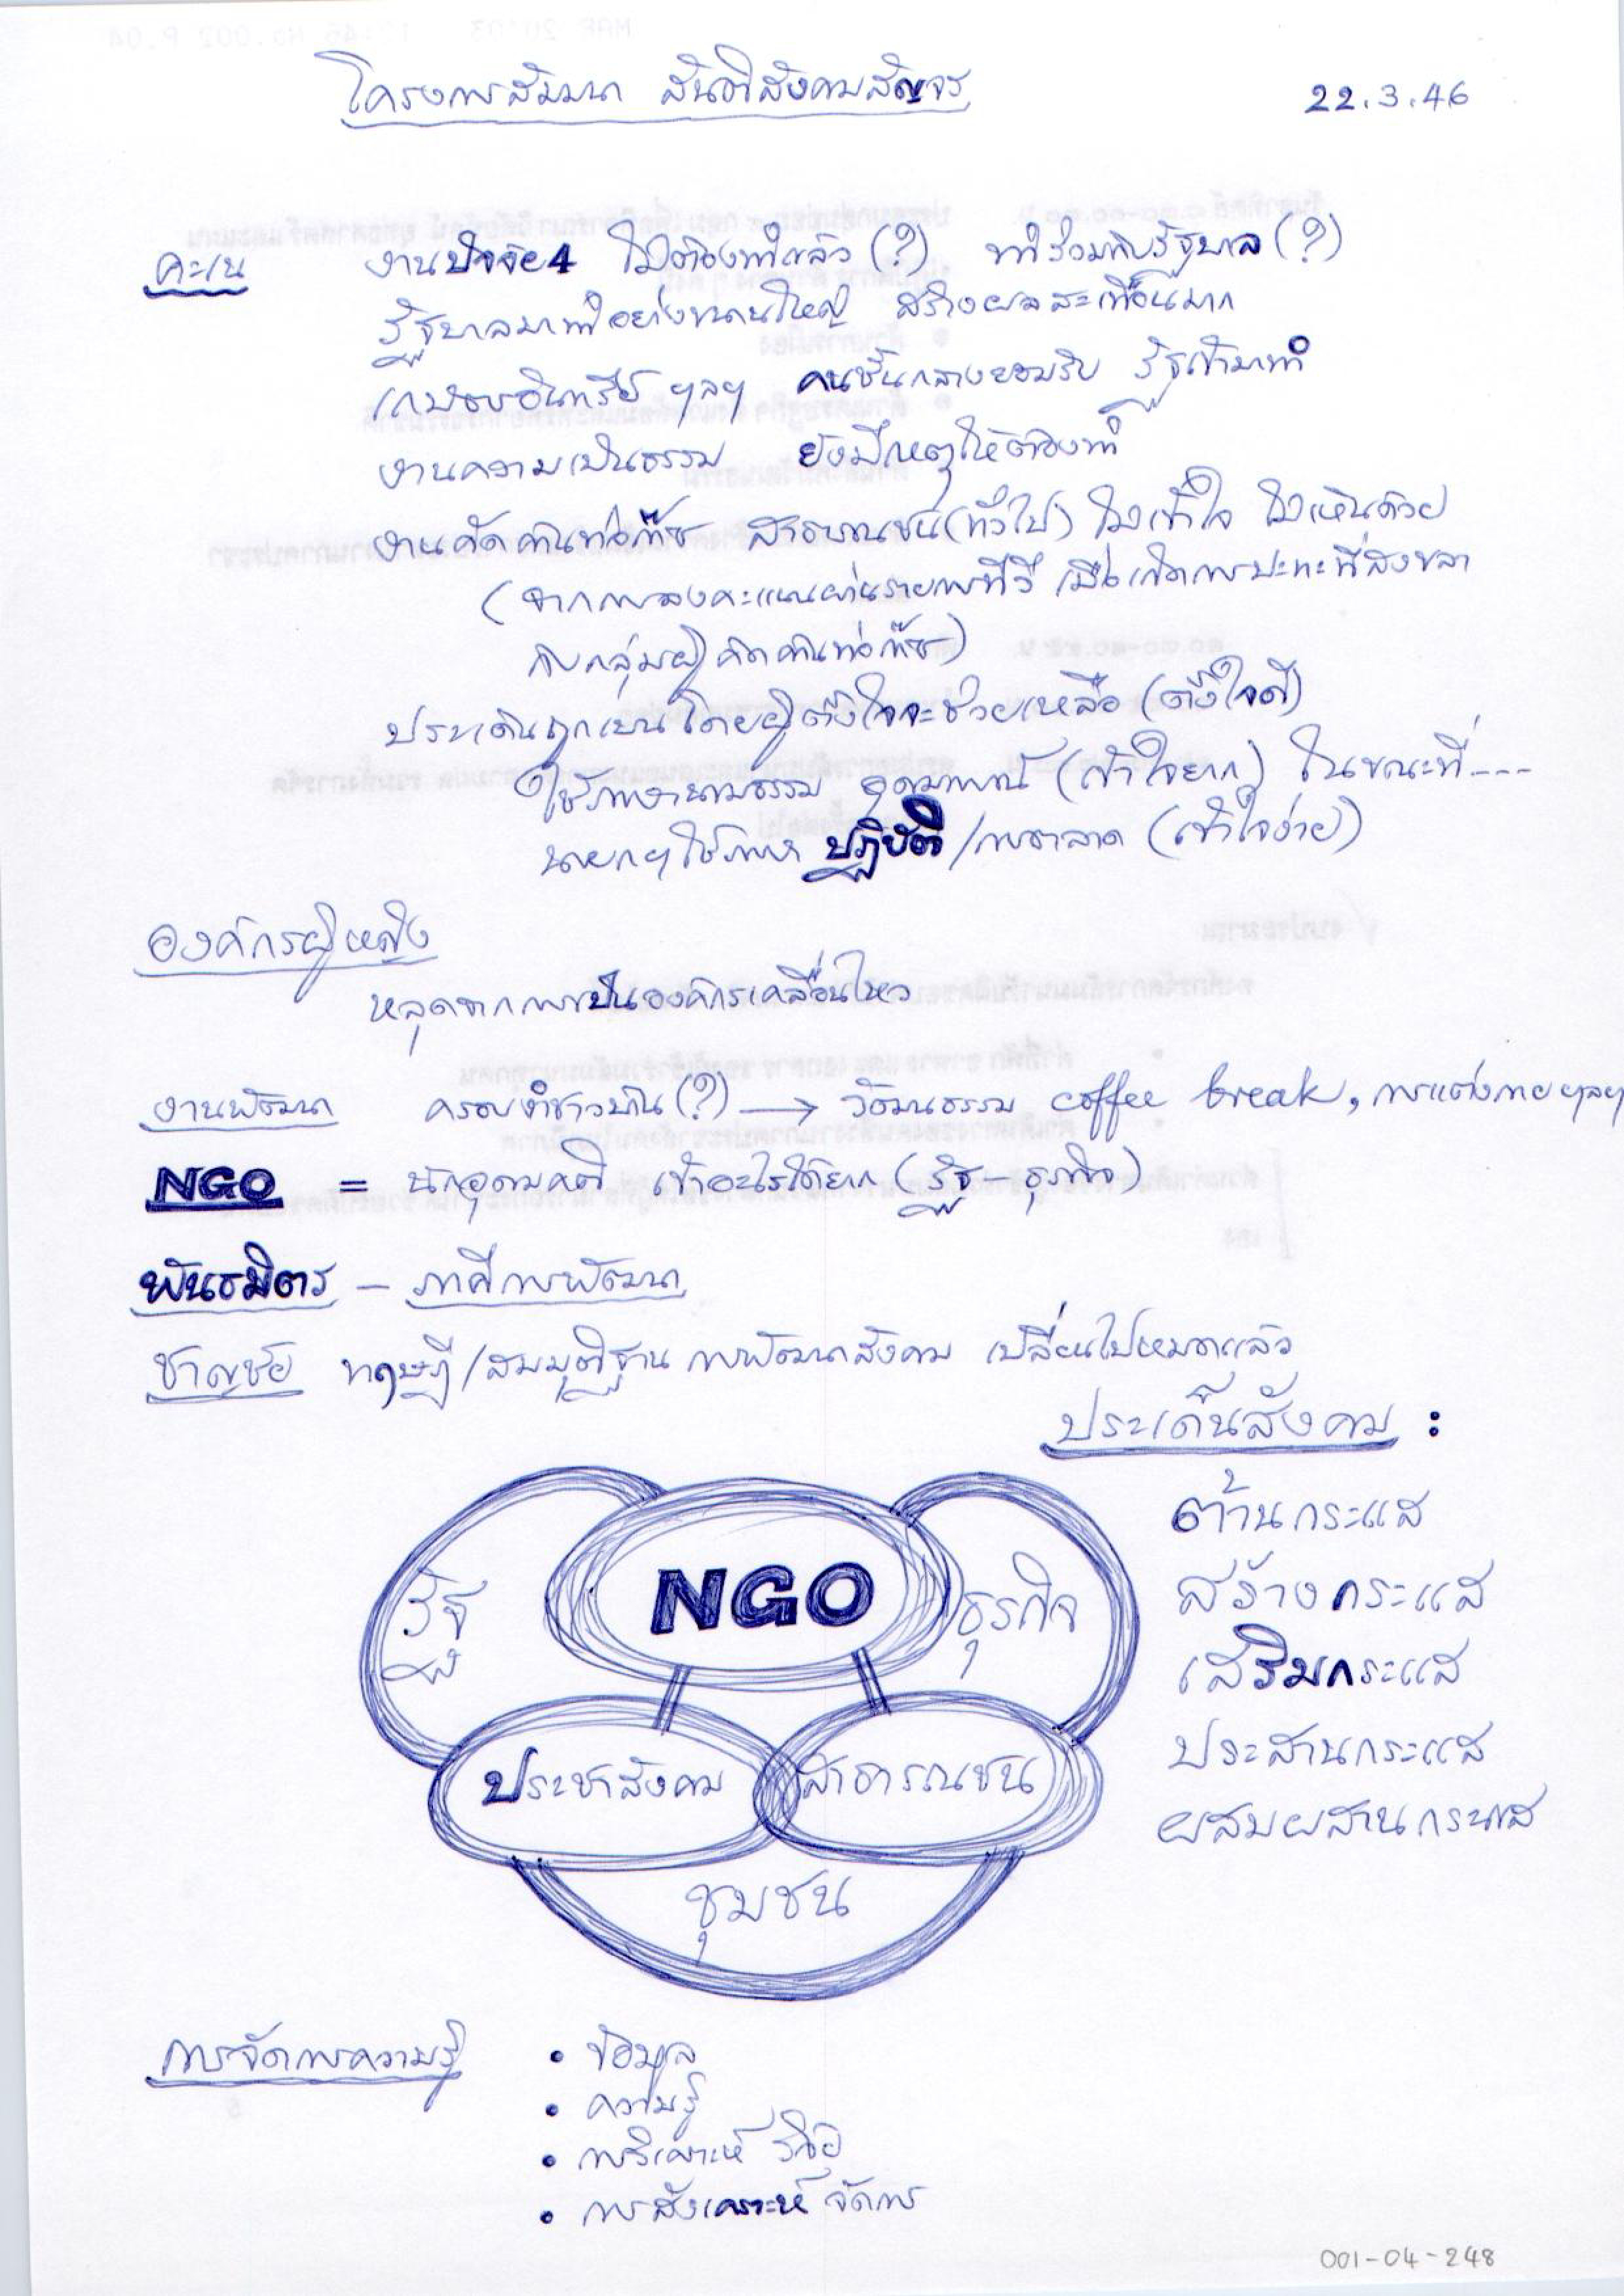 โครงการสัมมนา สันติสังคมสัญจร 22.3.46
คะเน งานปัจจัย 4 ไม่ต้องทำแล้ว (?) ทำร่วมกับรัฐบาล (?)
รัฐบาลมาทำอย่างขนานใหญ่ สร้างผลสะเทือนมาก
เกษตรอินทรีย์ ฯลฯ คนชั้นกลางยอมรับ รัฐเข้ามาทำ
งานความเป็นธรรม ยังมีเหตุให้ต้องทำ
งานคัดค้านท่อก๊าซ สาธารณชน (ทั่วไป) ไม่เข้าใจ ไม่เห็นด้วย
(จากการลงคะแนนผ่านรายการทีวี เมื่อเกิดการปะทะที่สงขลา
กับกลุ่มผู้คัดค้านท่อก๊าซ)
ประเด็นถูกเบนโดยผู้ตั้งใจจะช่วยเหลือ (ตั้งใจดี)
ใช้ภาษานามธรรม อุดมการณ์ (เข้าใจยาก) ในขณะที่----
นายกฯ ใช้ภาษา ปฏิบัติ/การตลาด (เข้าใจง่าย)
องค์กรผู้หญิง
หลุดจากการเป็นองค์กรเคลื่อนไหว
งานพัฒนา ครอบงำชาวบ้าน (?) → วัฒนธรรม coffee break, การแต่งกาย ฯลฯ
NGO = นักอุดมคติ เข้าอะไรได้ยาก (รัฐ – ธุรกิจ)
พันธมิตร – ภาคีการพัฒนา
ชาญชัย ทฤษฎี/สมมุติฐาน การพัฒนาสังคม เปลี่ยนไปหมดแล้ว
ประเด็นสังคม :
ต้านกระแส
สร้างกระแส
เสริมกระแส
ประสานกระแส
ผสมผสานกระแส
NGO
รัฐ
ธุรกิจ
ประชาสังคม
สาธารณชน
ชุมชน
การจัดการความรู้
• ข้อมูล
• ความรู้
• การวิเคราะห์ วิจัย
• การสังเคราะห์ จัดการ
001-04-248